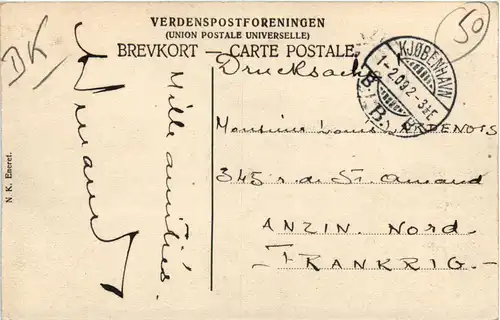 VERDENSPOSTFORENINGEN
(UNION POSTALE UNIVERSELLE)
BREVKORT — CARTE POSTALE
BK
50
KJØBENHAVN
1-2.09.2-3½E
B.
Drucksache
Monsieur Louis
345 r. de St. Amand
ANZIN. Nord.
— FRANKRIG. —
Mille amitiés.
N. K. Eneret.